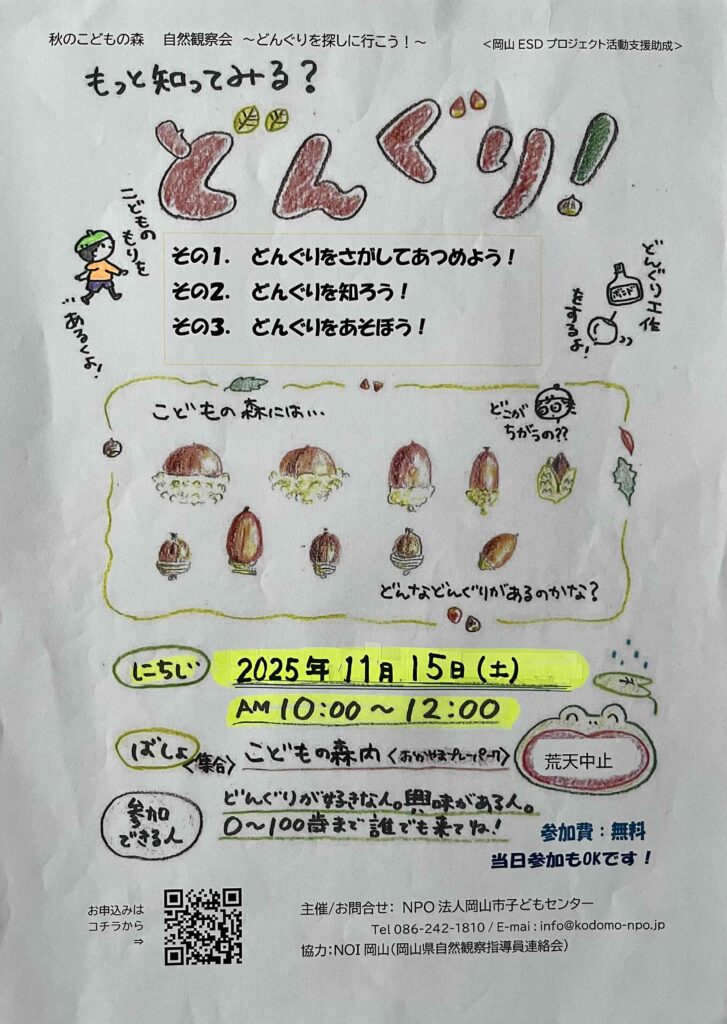 秋のこどもの森　自然観察会　～どんぐりを探しに行こう！～　＜岡山 ESD プロジェクト活動支援助成＞
もっと知ってみる？
どんぐり！
こどもの
もりを
あるくよ！
その1.　どんぐりをさがしてあつめよう！
その2.　どんぐりを知ろう！
その3.　どんぐりをあそぼう！
どんぐり工作
をするよ！
ボンド
こどもの森には…
どこが
ちがうの??
どんなどんぐりがあるのかな？
にちじ　2025年 11月 15日（土）
AM 10:00 ～ 12:00
ばしょ〈集合〉こどもの森内〈おかやまプレーパーク〉
荒天中止
参加
できる人
どんぐりが好きな人。興味がある人。
0～100歳まで誰でも来てね！
参加費：無料
当日参加もOKです！
お申込みは
コチラから
⇒
主催/お問合せ： NPO 法人岡山市子どもセンター
Tel 086-242-1810 / E-mai : info@kodomo-npo.jp
協力：NOI 岡山（岡山県自然観察指導員連絡会）